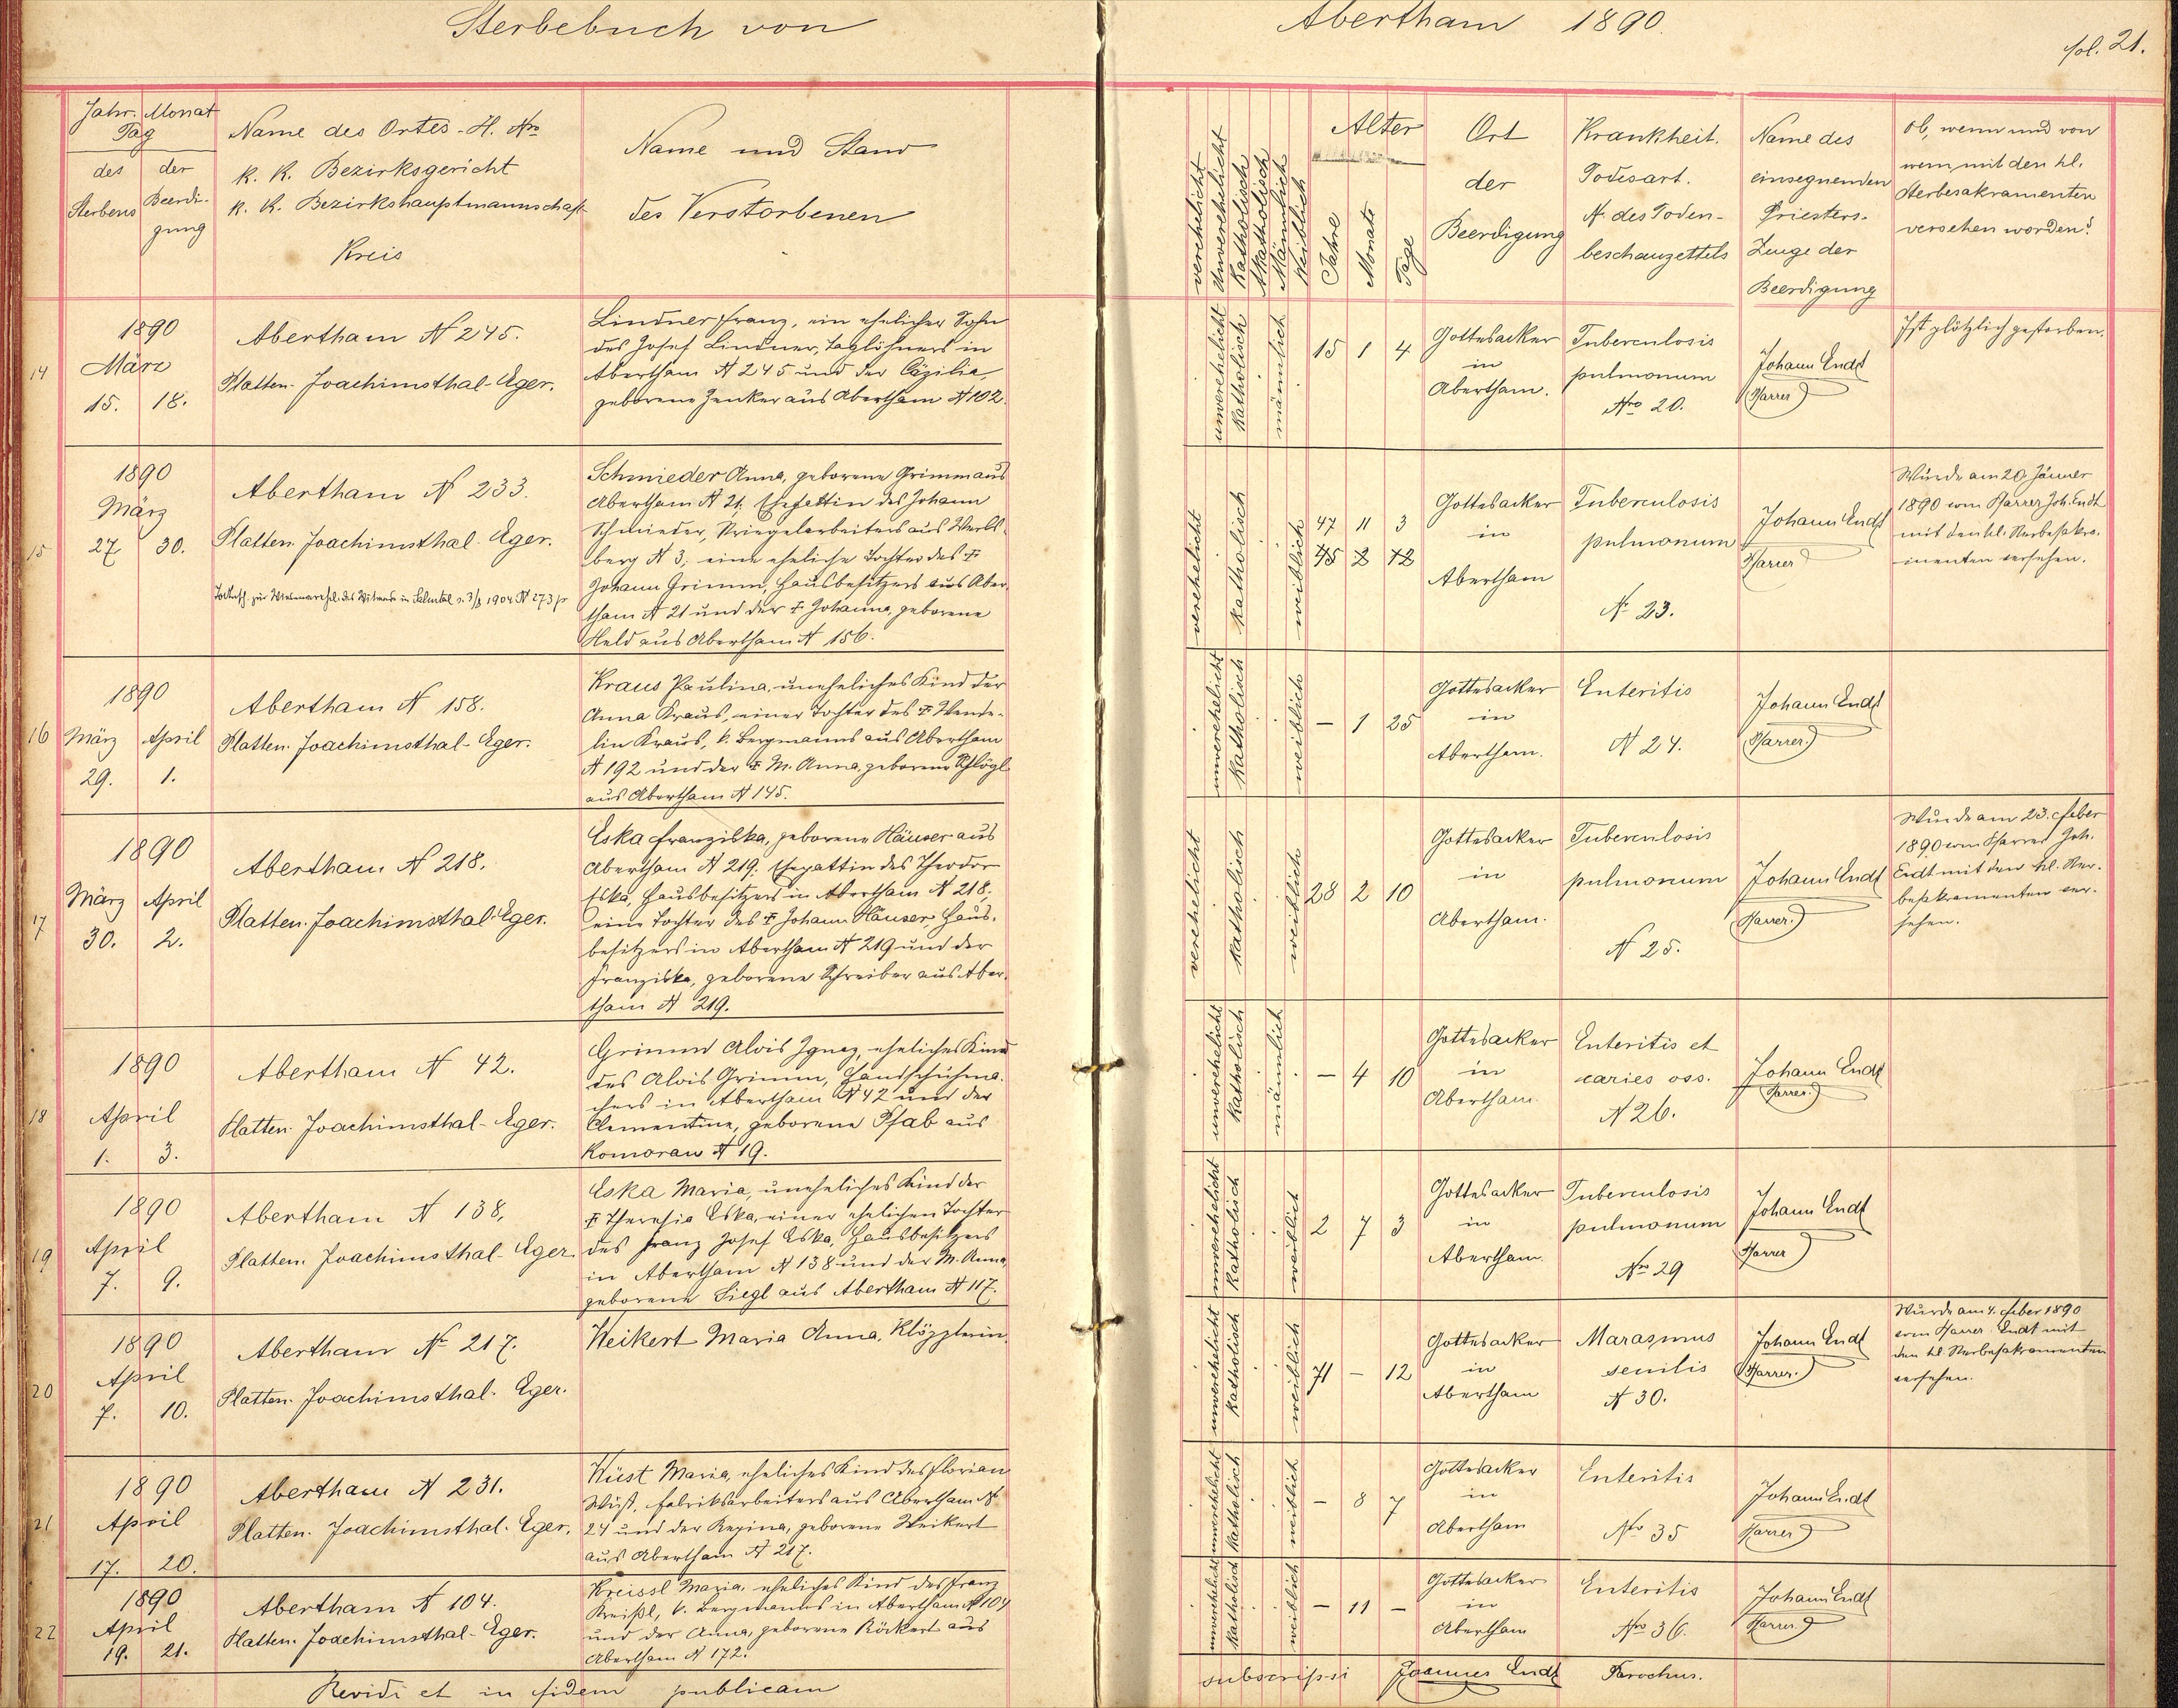 Sterbebuch von Abertham 1890.
fol. 21.
Jahr. Monat
Tag
des
Sterbens
der
Beerdi-
gung
Name des Ortes - H. Nro
K. K. Bezirksgericht
K. K. Bezirkshauptmannschaft
Kreis
Name und Stand
des Verstorbenen
verehelicht
Unverehelicht
Katholisch
Akatholisch
Männlich
Weiblich
Alter
Jahre
Monate
Tage
Ort
der
Beerdigung
Krankheit.
Todesart.
N. des Toden-
beschauzettels
Name des
einsegnenden
Priesters.
Zeuge der
Beerdigung
Ob, wenn und von
wem, mit den hl.
Sterbesakramenten
versehen worden?
14
1890
März
15. 18.
Abertham N 245.
Platten. Joachimsthal-Eger.
Lindner Franz, ein ehelicher Sohn
des Josef Lindner, Taglöhners in
Abertham N 245 und der Cäzilia,
geborene Zenker aus Abertham N 102.
unverehelicht
Katholisch
männlich
15 1 4
Gottesacker
in
Abertham.
Tuberculosis
pulmonum
Nro 20.
Johann Endt
Pfarrer
Ist plötzlich gestorben.
15
1890
März
27. 30.
Abertham N 233.
Platten. Joachimsthal-Eger.
1904 N 273
Schmieder Anna, geborene Grimm aus
Abertham N 21; Ehegattin des Johann
Schmieder, aus Werls-
berg N 3; eine eheliche Tochter des †
Johann Grimm, Hausbesitzers aus Aber-
tham N 21 und der † Johanna, geborene
Held aus Abertham N 156.
verehelicht
Katholisch
weiblich
47 11 3
45 2 12
Gottesacker
in
Abertham
Tuberculosis
pulmonum
N. 23.
Johann Endt
Pfarrer
Wurde am 20. Jänner
1890 vom Pfarrer Joh. Endt
mit den hl. Sterbesakra-
menten versehen.
16
1890
März April
29. 1.
Abertham N 158.
Platten. Joachimsthal-Eger.
Kraus Paulina, uneheliches Kind der
Anna Kraus, einer Tochter des † Wende-
lin Kraus, k. Bergmanns aus Abertham
N 192 und der † M. Anna, geborene Schlögl
aus Abertham N 145.
unverehelicht
Katholisch
weiblich
- 1 25
Gottesacker
in
Abertham.
Enteritis
N 24.
Johann Endt
Pfarrer.
17
1890
März April
30. 2.
Abertham N 218.
Platten. Joachimsthal-Eger.
Eska Franziska, geborene Häuser aus
Abertham N 219; Ehegattin des Theodor
Eska, Hausbesitzers in Abertham N 218;
eine Tochter des † Johann Häuser, Haus-
besitzers in Abertham N 219 und der
Franziska, geborene Schreiber aus Aber-
tham N 219.
verehelicht
Katholisch
weiblich
28 2 10
Gottesacker
in
Abertham.
Tuberculosis
pulmonum
N 25.
Johann Endt
Pfarrer.
Wurde am 23. Feber
1890 vom Pfarrer Joh.
Endt mit den hl. Ster-
besakramenten ver-
sehen.
18
1890
April
1. 3.
Abertham N 42.
Platten. Joachimsthal-Eger.
Grimm Alois Ignaz, eheliches Kind
des Alois Grimm, Handschuhma-
chers in Abertham N 42 und der
Clementine, geborene Pfab aus
Komorau N 19.
unverehelicht
Katholisch
männlich
- 4 10
Gottesacker
in
Abertham.
Enteritis et
caries oss.
N 26.
Johann Endt
Pfarrer.
19
1890
April
7. 9.
Abertham N 138,
Platten. Joachimsthal-Eger.
Eska Maria, uneheliches Kind der
† Theresia Eska, einer ehelichen Tochter
des Franz Josef Eska, Hausbesitzers
in Abertham N 138 und der M. Anna,
geborene Siegl aus Abertham N 117.
unverehelicht
Katholisch
weiblich
2 7 3
Gottesacker
in
Abertham.
Tuberculosis
pulmonum
Nro 29
Johann Endt
Pfarrer
20
1890
April
7. 10.
Abertham N 217.
Platten. Joachimsthal. Eger.
Weikert Maria Anna, Klöpplerin.
unverehelicht
Katholisch
weiblich
71 - 12
Gottesacker
in
Abertham
Marasmus
senilis
N 30.
Johann Endt
Pfarrer.
Wurde am 4. Feber 1890
vom Pfarrer Endt mit
den hl. Sterbesakramenten
versehen.
21
1890
April
17. 20.
Abertham N 231.
Platten. Joachimsthal. Eger.
Wüst Maria, eheliches Kind des Florian
Wüst, Fabriksarbeiters aus Abertham N
24 und der Regina, geborene Weikert
aus Abertham N 217.
unverehelicht
Katholisch
weiblich
- 8 7
Gottesacker
in
Abertham
Enteritis
Nro 35
Johann Endt
Pfarrer
22
1890
April
19. 21.
Abertham N 104.
Platten. Joachimsthal-Eger.
Kreissl Maria, eheliches Kind des Franz
Kreißl, k. Bergmanns in Abertham N 104
und der Anna, geborene Röckert aus
Abertham N 172.
unverehelicht
Katholisch
weiblich
- 11 -
Gottesacker
in
Abertham
Enteritis
Nro 36.
Johann Endt
Pfarrer
Revidi et in fidem publicam subscripsi Joannes Endt Parochus.